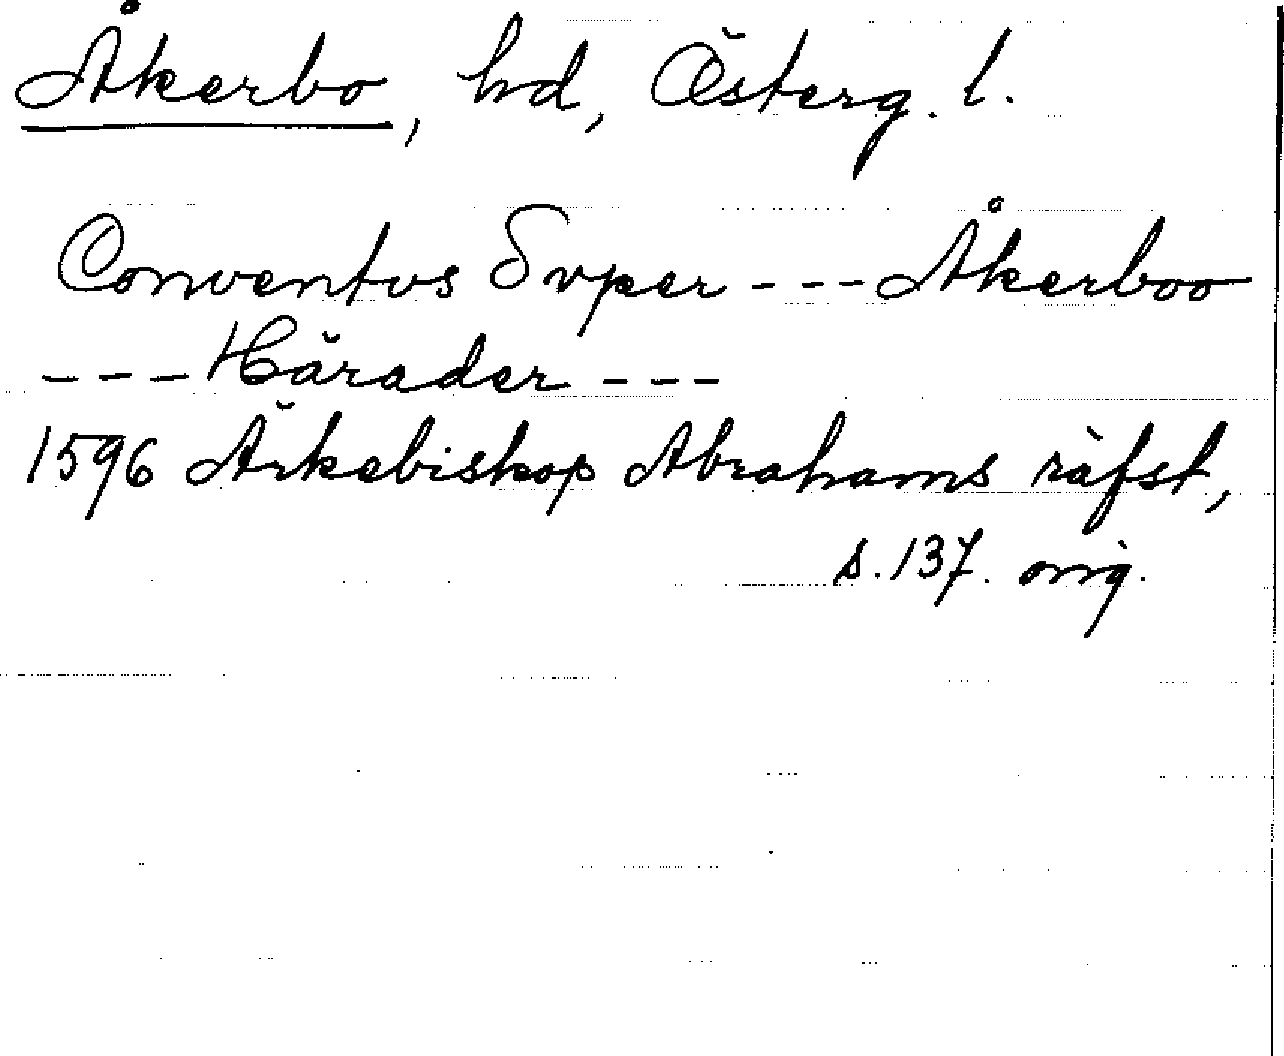 Åkerbo, hd, Österg. l.
Conventvs Svper --- Åkerboo
--- Härader ---
1596 Ärkebiskop Abrahams räfst,
s. 137. orig.